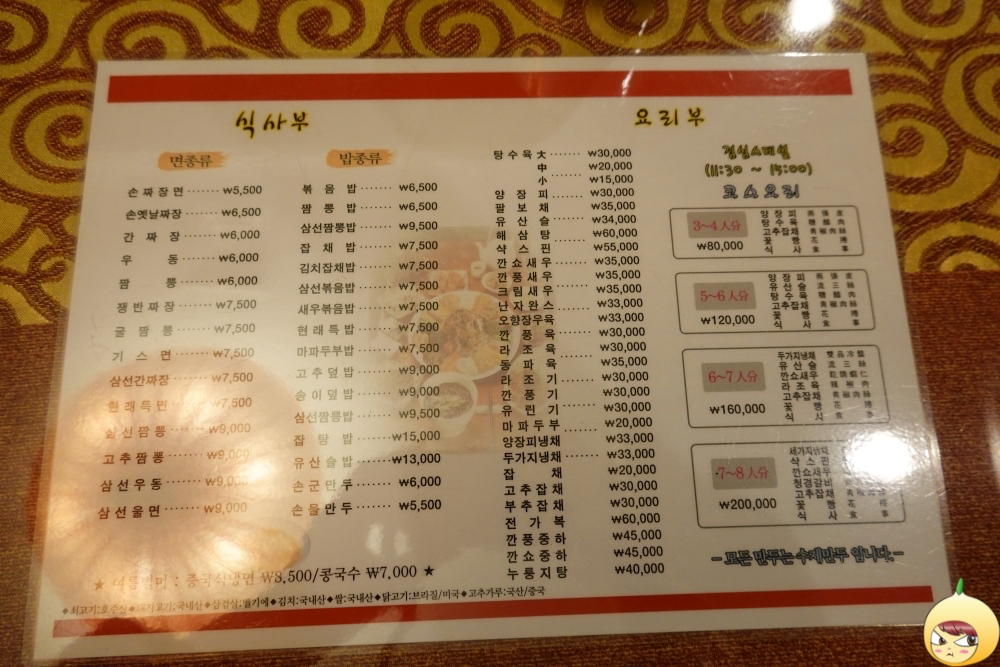 식사부
면종류
손짜장면 ······· ₩5,500
손옛날짜장 ······ ₩6,500
간짜장 ······· ₩6,000
우동 ······· ₩6,000
짬뽕 ······· ₩6,000
쟁반짜장 ······ ₩7,500
굴짬뽕 ······ ₩7,500
기스면 ······ ₩7,500
삼선간짜장 ······ ₩7,500
현래특면 ······ ₩7,500
삼선짬뽕 ······ ₩9,000
고추짬뽕 ······ ₩9,000
삼선우동 ······ ₩9,000
삼선울면 ······ ₩9,000
밥종류
볶음밥 ······· ₩6,500
짬뽕밥 ······· ₩6,500
삼선짬뽕밥 ······ ₩9,500
잡채밥 ······· ₩7,500
김치잡채밥 ······ ₩7,500
삼선볶음밥 ······ ₩7,500
새우볶음밥 ······ ₩7,500
현래특밥 ······ ₩7,500
마파두부밥 ······ ₩7,500
고추덮밥 ······ ₩9,000
송이덮밥 ······ ₩9,000
삼선짬뽕밥 ······ ₩9,500
잡탕밥 ······ ₩15,000
유산슬밥 ······ ₩13,000
손군만두 ······ ₩6,000
손물만두 ······ ₩5,500
★ 여름별미 : 중국식냉면 ₩8,500/콩국수 ₩7,000 ★
요리부
탕수육 大 ······ ₩30,000
中 ······ ₩20,000
小 ₩15,000
양장피 ······ ₩30,000
팔보채 ······ ₩35,000
유산슬 ······ ₩34,000
해삼탕 ······ ₩60,000
샥스핀 ······ ₩55,000
깐쇼새우 ······ ₩35,000
깐풍새우 ······ ₩35,000
크림새우 ······ ₩35,000
난자완스 ······ ₩33,000
오향장우육 ······ ₩33,000
깐풍육 ······ ₩30,000
라조육 ······ ₩30,000
동파육 ······ ₩35,000
라조기 ······ ₩30,000
깐풍기 ······ ₩30,000
유린기 ······ ₩30,000
마파두부 ······ ₩20,000
양장피냉채 ······ ₩33,000
두가지냉채 ······ ₩33,000
잡채 ······ ₩20,000
고추잡채 ······ ₩30,000
부추잡채 ······ ₩30,000
전가복 ······ ₩60,000
깐풍중하 ······ ₩45,000
깐쇼중하 ······ ₩45,000
누룽지탕 ······ ₩40,000
점심스페셜
(11:30 ~ 15:00)
코스요리
3~4人分
₩80,000
양장피
탕수육
고추잡채
꽃빵
식사
5~6人分
₩120,000
양장피
유산슬
탕수육
고추잡채
꽃빵
식사
6~7人分
₩160,000
두가지냉채
유산슬
깐쇼새우
라조육
고추잡채
꽃빵
식사
7~8人分
₩200,000
세가지냉채
샥스핀
깐쇼새우
청경갈비
고추잡채
꽃빵
식사
- 모든 만두는 수제만두 입니다. -
◆쇠고기:호주산 ◆돼지고기:국내산 ◆삼겹살:벨기에 ◆김치:국내산 ◆쌀:국내산 ◆닭고기:브라질/미국 ◆고추가루:국산/중국